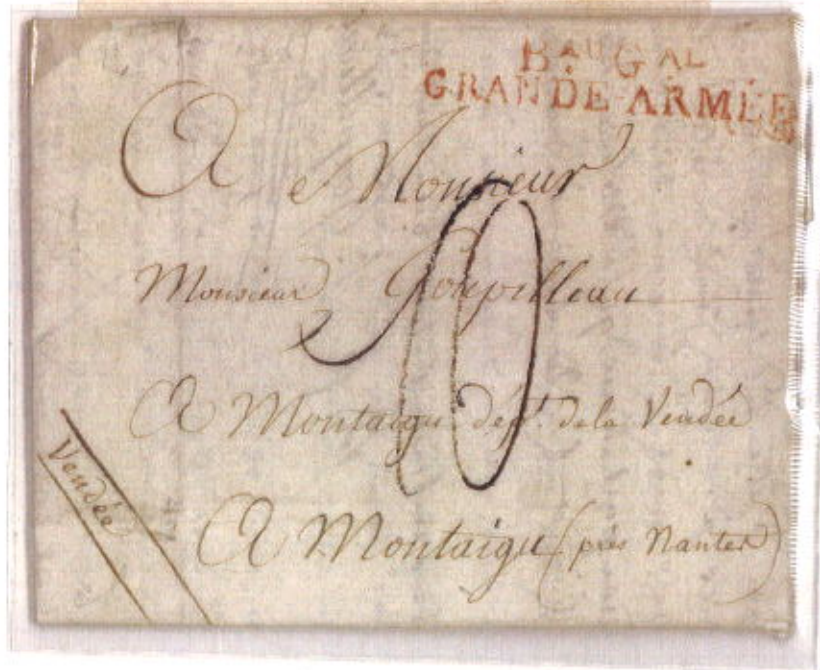 Bᵃᵘ Gᴬᴸ
GRANDE-ARMÉE
A Monsieur
Monsieur Goupilleau
A Montaigu dép.t de la Vendée
A Montaigu (près Nantes)
Vendée
10